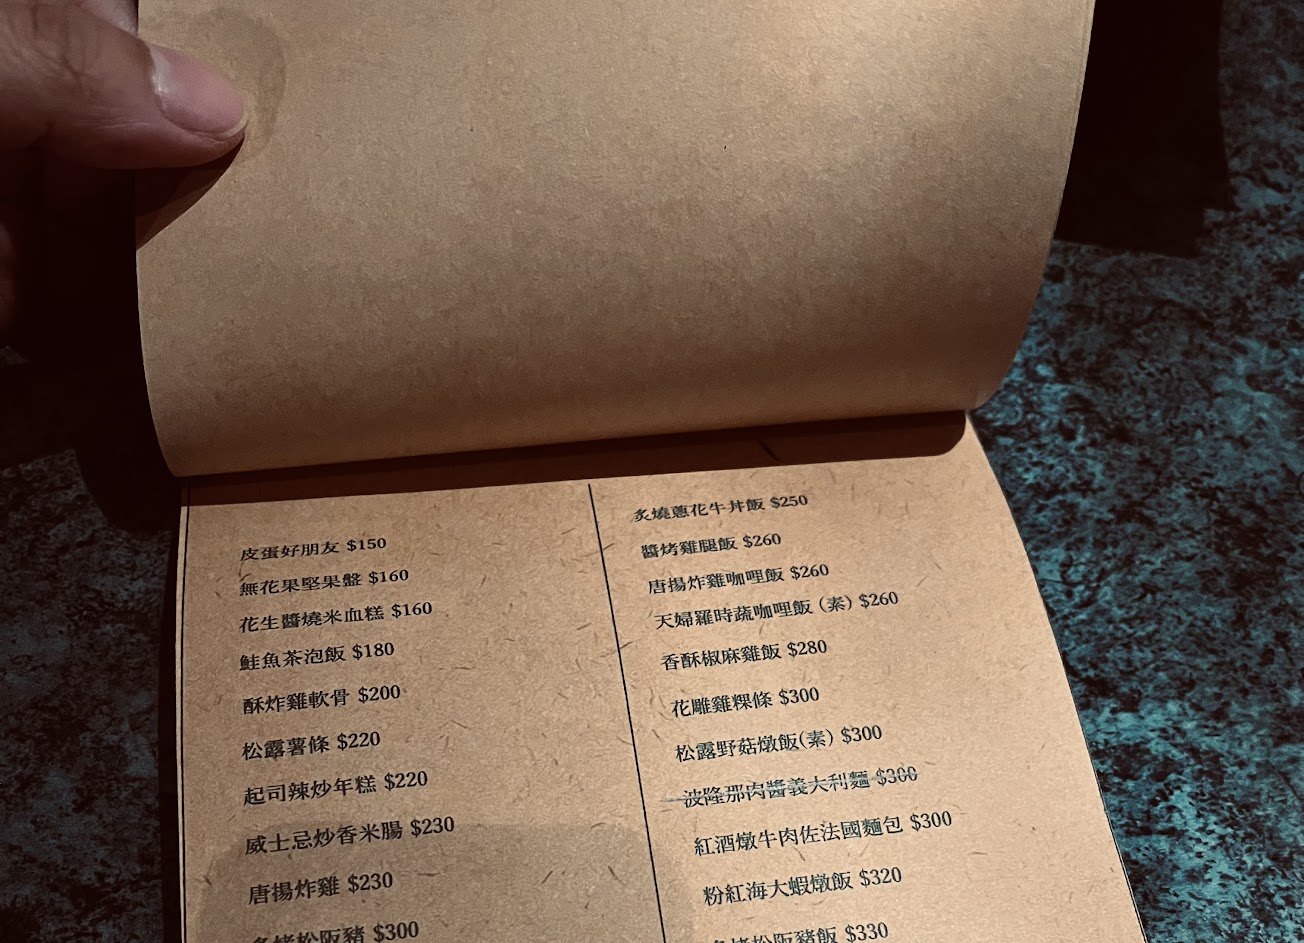 皮蛋好朋友 $150
無花果堅果盤 $160
花生醬燒米血糕 $160
鮭魚茶泡飯 $180
酥炸雞軟骨 $200
松露薯條 $220
起司辣炒年糕 $220
威士忌炒香米腸 $230
唐揚炸雞 $230
炙烤松阪豬 $300
炙燒蔥花牛丼飯 $250
醬烤雞腿飯 $260
唐揚炸雞咖哩飯 $260
天婦羅時蔬咖哩飯（素）$260
香酥椒麻雞飯 $280
花雕雞粿條 $300
松露野菇燉飯(素) $300
波隆那肉醬義大利麵 $300
紅酒燉牛肉佐法國麵包 $300
粉紅海大蝦燉飯 $320
炙烤松阪豬飯 $330